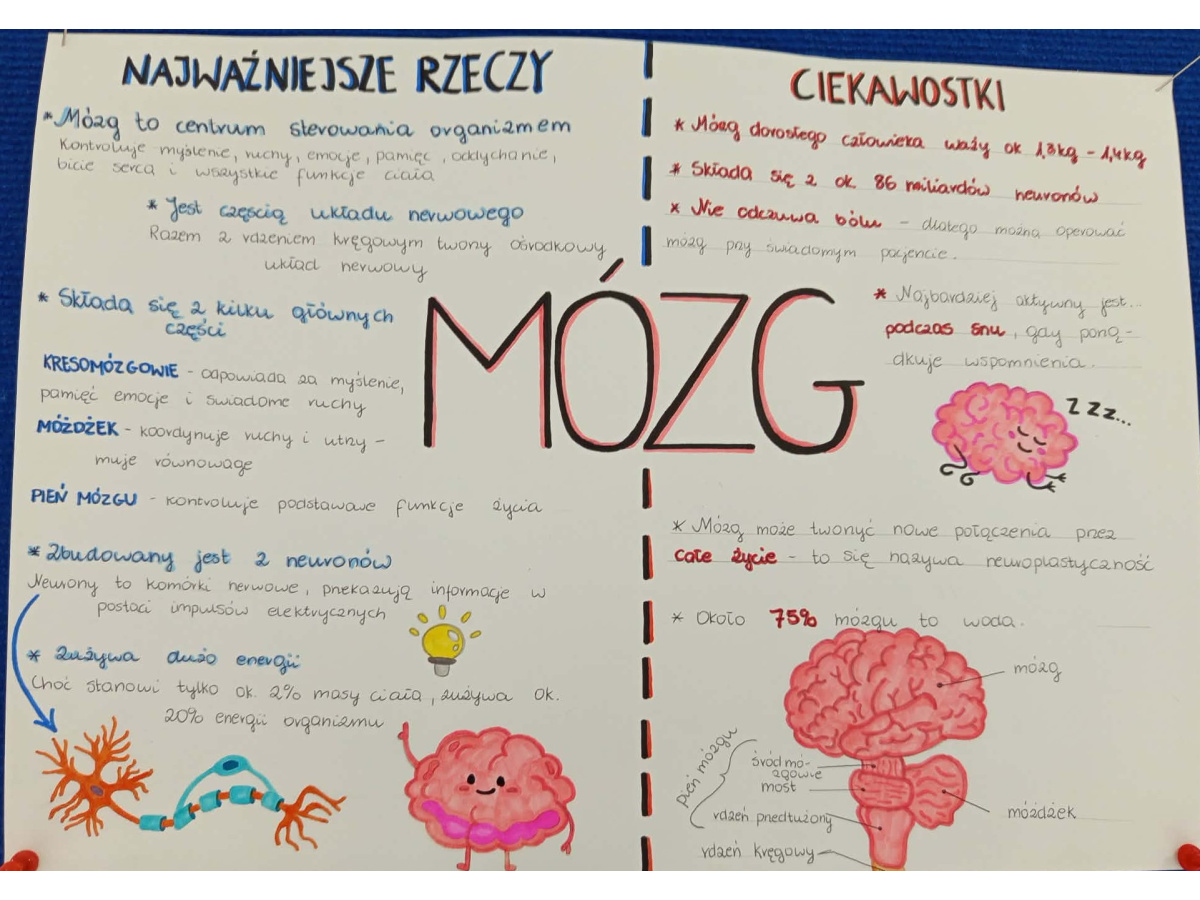 NAJWAŻNIEJSZE RZECZY
* Mózg to centrum sterowania organizmem
Kontroluje myślenie, ruchy, emocje, pamięć, oddychanie,
bicie serca i wszystkie funkcje ciała
* Jest częścią układu nerwowego
Razem z rdzeniem kręgowym tworzy ośrodkowy
układ nerwowy
* Składa się z kilku głównych
części
KRESOMÓZGOWIE - odpowiada za myślenie,
pamięć emocje i świadome ruchy
MÓŻDŻEK - koordynuje ruchy i utrzy-
muje równowagę
PIEŃ MÓZGU - kontroluje podstawowe funkcje życia
* Zbudowany jest z neuronów
Neurony to komórki nerwowe, przekazują informacje w
postaci impulsów elektrycznych
* Zużywa dużo energii
Choć stanowi tylko ok. 2% masy ciała, zużywa ok.
20% energii organizmu
MÓZG
CIEKAWOSTKI
* Mózg dorosłego człowieka waży ok 1,3kg - 1,4kg
* Składa się z ok. 86 miliardów neuronów
* Nie odczuwa bólu - dlatego można operować
mózg przy świadomym pacjencie.
* Najbardziej aktywny jest...
podczas snu, gdy porzą-
dkuje wspomnienia.
Zzz...
* Mózg może tworzyć nowe połączenia przez
całe życie - to się nazywa neuroplastyczność
* Około 75% mózgu to woda.
mózg
pień mózgu
śródmó-
zgowie
most
rdzeń przedłużony
rdzeń kręgowy
móżdżek